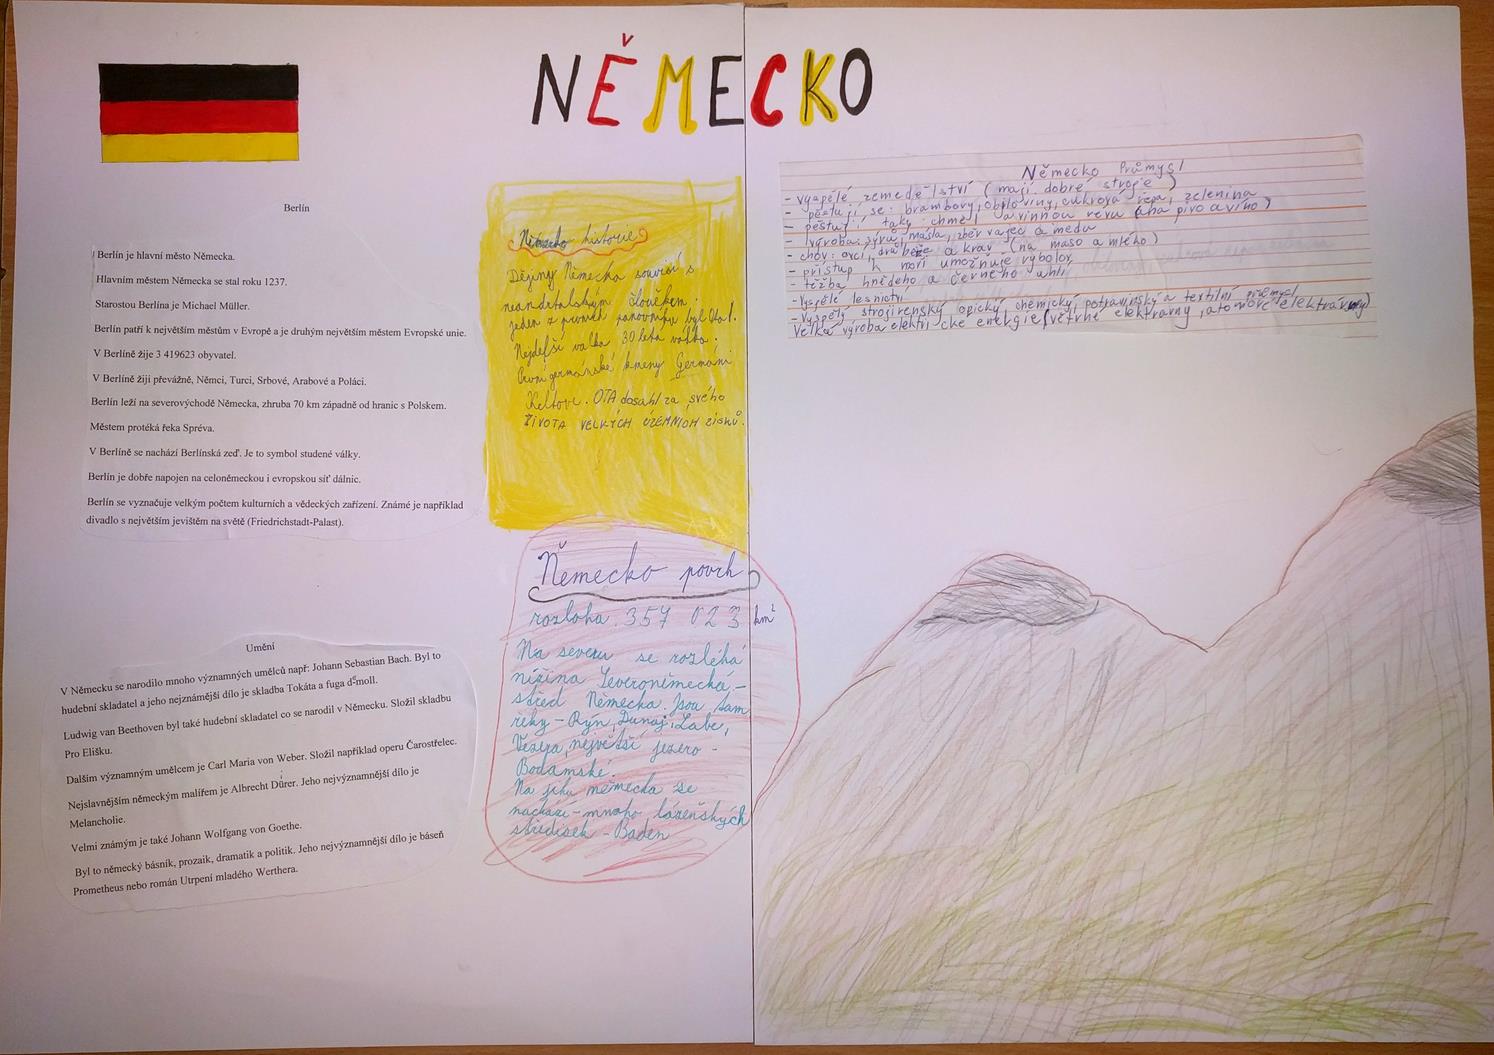 NĚMECKO
Berlín
Berlín je hlavní město Německa.
Hlavním městem Německa se stal roku 1237.
Starostou Berlína je Michael Müller.
Berlín patří k největším městům v Evropě a je druhým největším městem Evropské unie.
V Berlíně žije 3 419623 obyvatel.
V Berlíně žijí převážně, Němci, Turci, Srbové, Arabové a Poláci.
Berlín leží na severovýchodě Německa, zhruba 70 km západně od hranic s Polskem.
Městem protéká řeka Spréva.
V Berlíně se nachází Berlínská zeď. Je to symbol studené války.
Berlín je dobře napojen na celoněmeckou i evropskou síť dálnic.
Berlín se vyznačuje velkým počtem kulturních a vědeckých zařízení. Známé je například
divadlo s největším jevištěm na světě (Friedrichstadt-Palast).
Umění
V Německu se narodilo mnoho významných umělců např: Johann Sebastian Bach. Byl to
hudební skladatel a jeho nejznámější dílo je skladba Tokáta a fuga d moll.
Ludwig van Beethoven byl také hudební skladatel co se narodil v Německu. Složil skladbu
Pro Elišku.
Dalším významným umělcem je Carl Maria von Weber. Složil například operu Čarostřelec.
Nejslavnějším německým malířem je Albrecht Dürer. Jeho nejvýznamnější dílo je
Melancholie.
Velmi známým je také Johann Wolfgang von Goethe.
Byl to německý básník, prozaik, dramatik a politik. Jeho nejvýznamnější dílo je báseň
Prometheus nebo román Utrpení mladého Werthera.
Německo historie
Dějiny Německa souvisí s
neandrtalským člověkem.
jeden z prvních panovníku byl Ota I.
Nejdelší valka 30 letá válka.
První germánské kmeny Germáni
Keltove. OTA dosáhl za svého
ŽIVOTA VELKÝCH ÚZEMNÍCH ZISKŮ.
Německo povrh
rozloha 357 023 km²
Na severu se rozléhá
nížina Severoněmecká -
střed Německa. Jsou tam
řeky - Rýn, Dunaj, Labe,
Vezera, největší jezero -
Bodamské.
Na jihu německa se
nachází - mnoho lázeňských
středisek - Baden
Německo Průmysl
- vyspělé zemedělství (mají dobré stroje)
- pěstují se: brambory, obiloviny, cukrová řepa, zelenina
- pěstují, taky chmel a vinnou révu (na pivo a víno)
- výroba: sýrů, másla, zběr vajec a medu
- chov: ovcí, a krav (na maso a mlého)
- přístup k moři umožňuje rybolov
- těžba hnědého a černého uhlí
- Vyspělé lesnictví
- vyspělý strojírenský opický chemický, potravinský a textilní průmysl
Velká výroba elektrické energie (větrné elektrarny, atomové elektrárny)